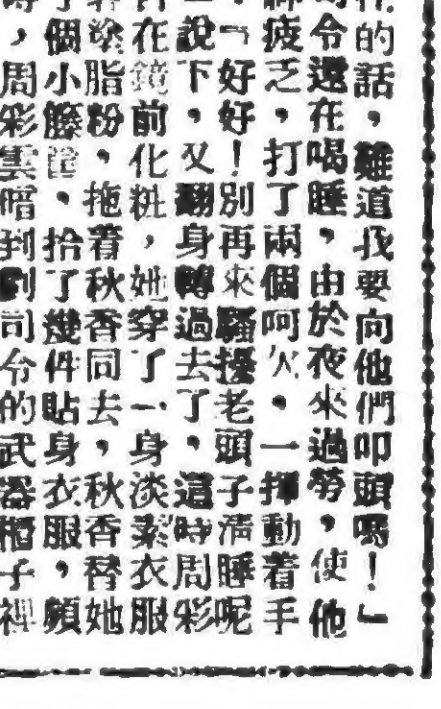 的話，難道我要向他們叩頭嗎！」
令還在喝睡，由於夜來過勞，使他
疲乏，打了兩個呵欠。一揮動着手
「好好！別再來騷擾老頭子清睡呢
說下，又翻身轉過去了，這時周彩
在鏡前化粧，她穿了一身淡素衣服
塗脂粉，拖着秋香同去，秋香替她
個小籐，拾了幾件貼身衣服，順
，周彩雲暗到劉司令的武器櫃子裡